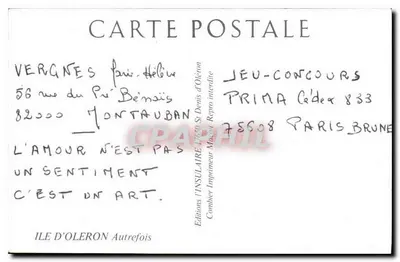 CARTE POSTALE
VERGNES Marie-Hélène
56 rue du Pré Bénaïs
82000 MONTAUBAN
L'AMOUR N'EST PAS
UN SENTIMENT
C'EST UN ART.
ILE D'OLERON Autrefois
Editions l'INSULAIRE St Denis d'Oléron
Combier Imprimeur Mâcon Repro interdite
JEU-CONCOURS
PRIMA Cédex 833
75508 PARIS BRUNE
CPAPHIL